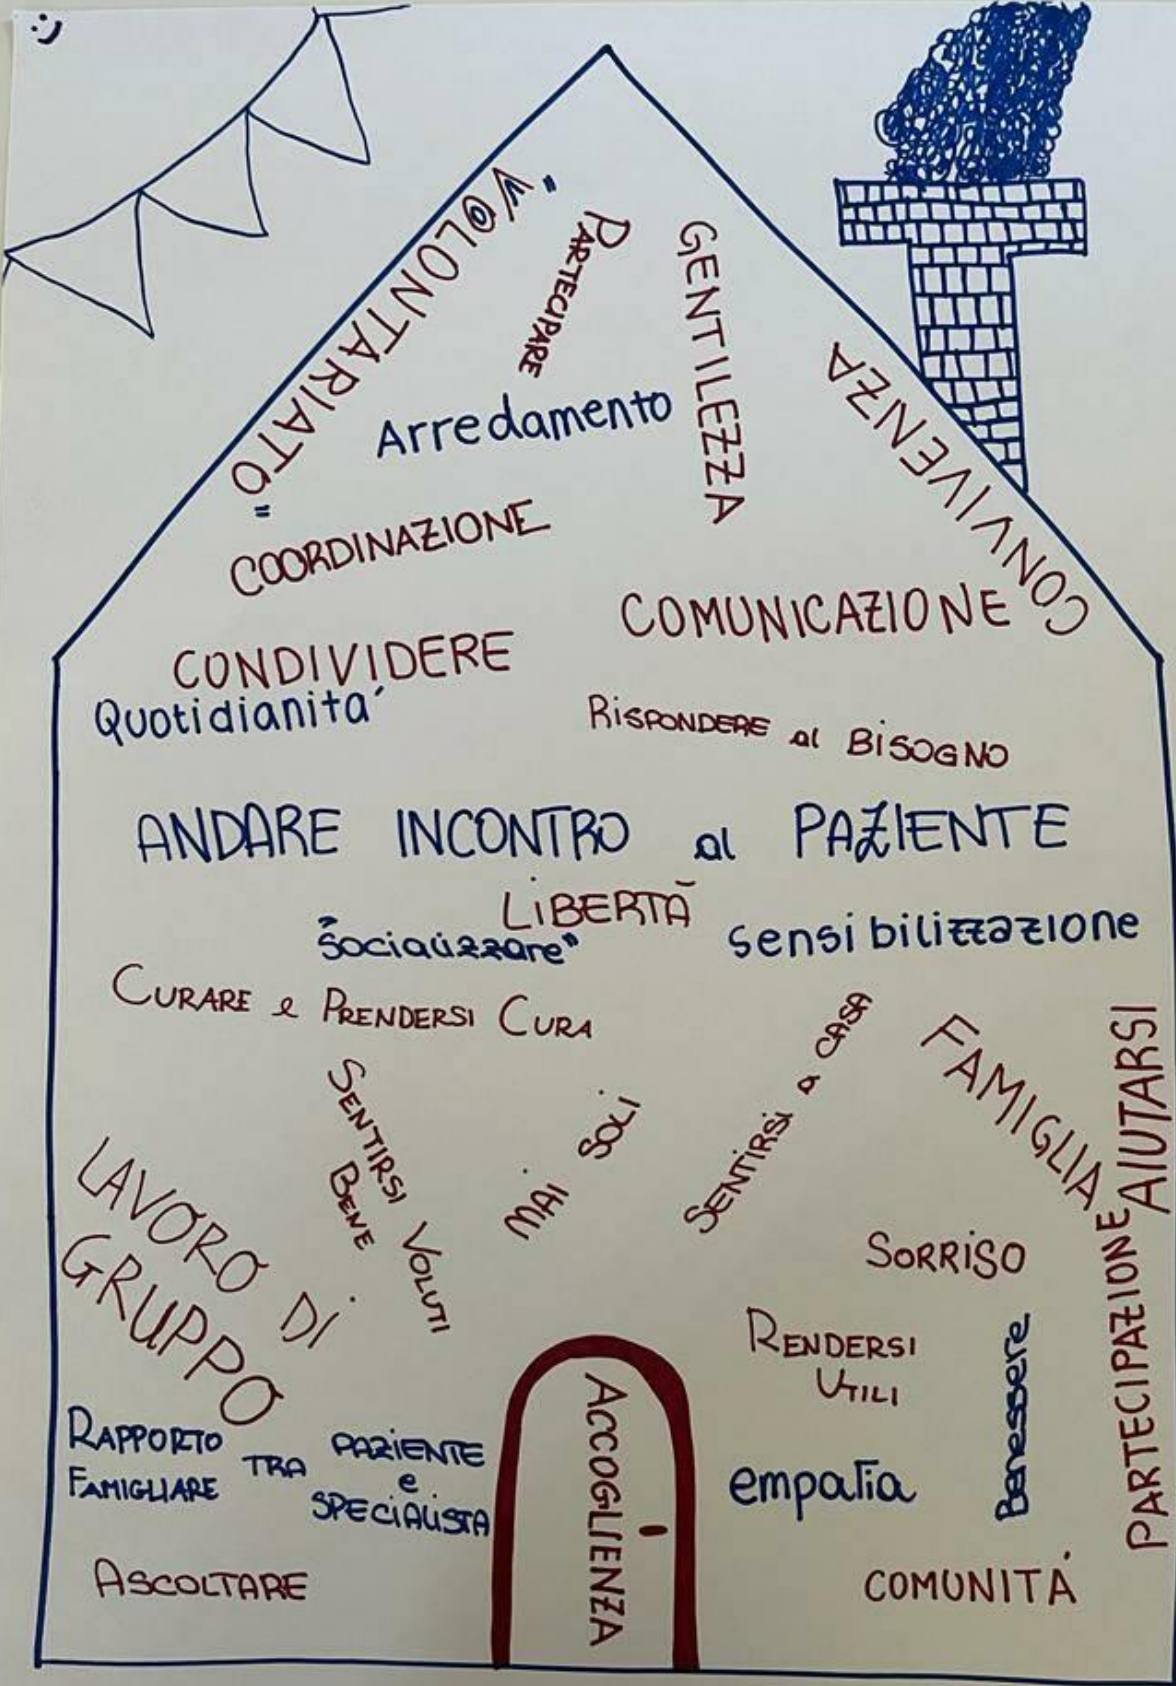 :)
"V@LONTARIATO"
PARTECIPARE
GENTILEZZA
CONVIVENZA
Arredamento
COORDINAZIONE
COMUNICAZIONE
CONDIVIDERE
Quotidianita'
RISPONDERE al BISOGNO
ANDARE INCONTRO al PAZIENTE
LIBERTÀ
"Socializzare"
sensibilizzazione
CURARE e PRENDERSI CURA
SENTIRSI VOLUTI
BENE
MAI SOLI
SENTIRSI a CASA
FAMIGLIA
AIUTARSI
LAVORO DI
GRUPPO
SORRISO
PARTECIPAZIONE
RENDERSI
UTILI
Benessere
RAPPORTO
FAMIGLIARE
TRA
PAZIENTE
e
SPECIALISTA
ACCOGLIENZA
empatia
ASCOLTARE
COMUNITÀ